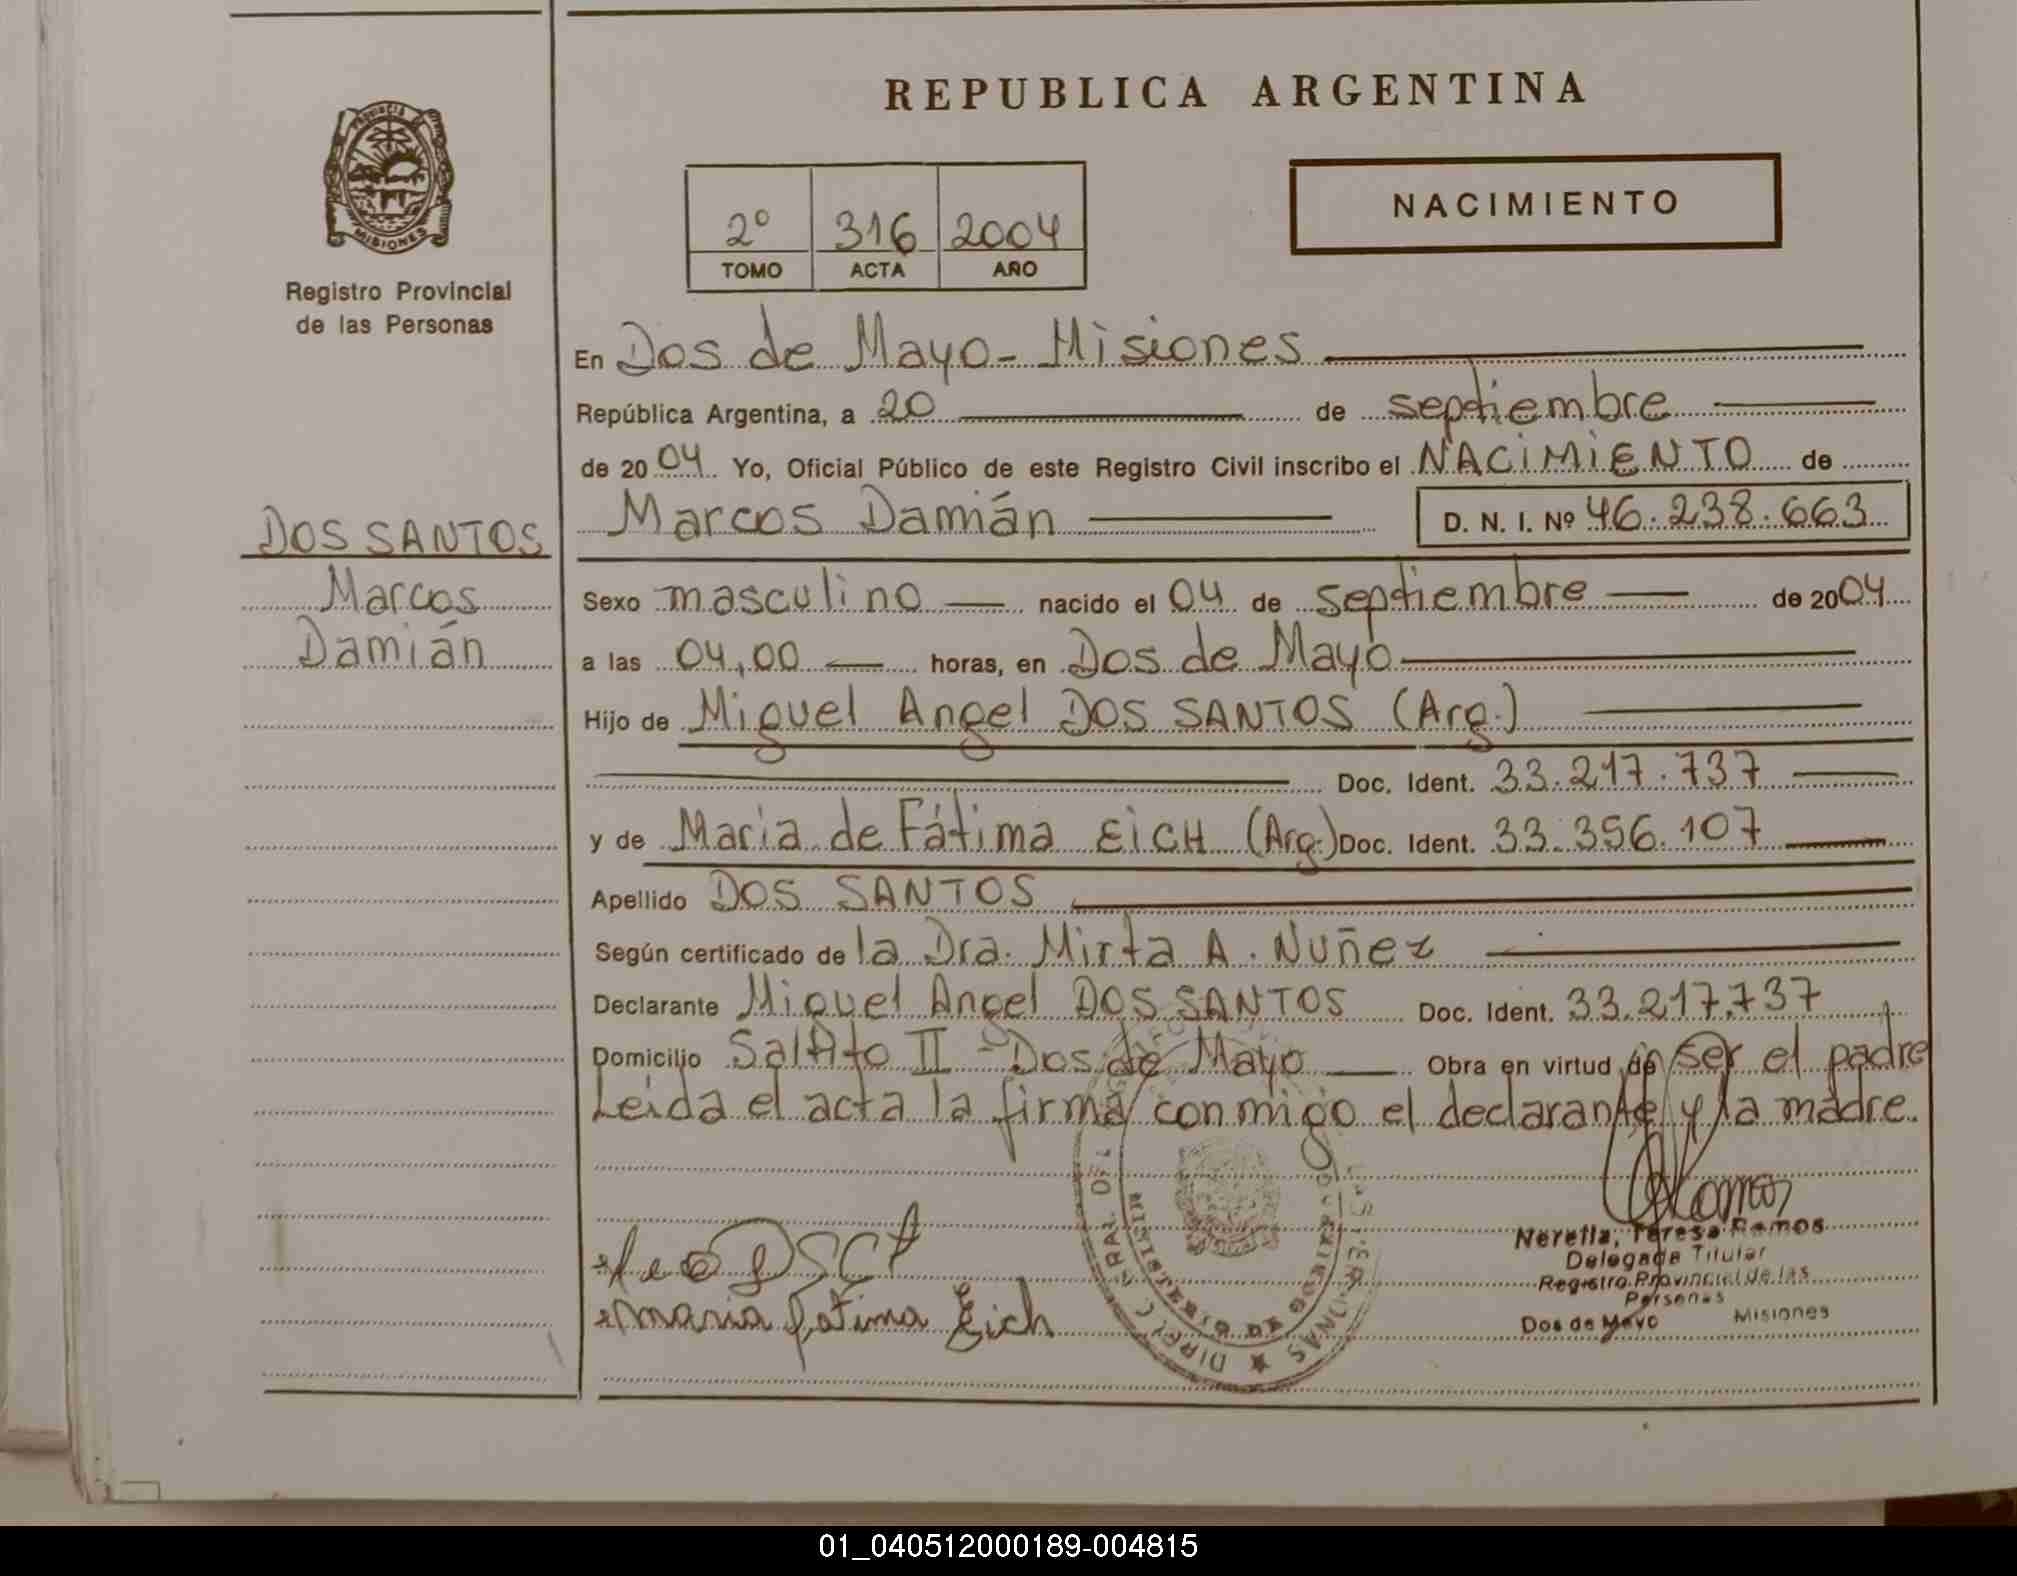 REPUBLICA ARGENTINA
PROVINCIA
MISIONES
Registro Provincial
de las Personas
2º 316 2004
TOMO ACTA AÑO
NACIMIENTO
En Dos de Mayo - Misiones
República Argentina, a 20 de septiembre
de 2004 Yo, Oficial Público de este Registro Civil inscribo el NACIMIENTO de
Marcos Damián D. N. I. Nº 46.238.663
DOS SANTOS
Marcos
Damián
Sexo masculino nacido el 04 de septiembre de 2004
a las 04,00 horas, en Dos de Mayo
Hijo de Miguel Angel DOS SANTOS (Arg.)
Doc. Ident. 33.217.737
y de Maria de Fátima EICH (Arg.) Doc. Ident. 33.356.107
Apellido DOS SANTOS
Según certificado de la Dra. Mirta A. Nuñez
Declarante Miguel Angel DOS SANTOS Doc. Ident. 33.217.737
Domicilio Saltito II - Dos de Mayo Obra en virtud de ser el padre
Leida el acta la firma conmigo el declarante y la madre.
Nerella, Teresa Ramos
Delegada Titular
Registro Provincial de las
Personas
Dos de Mayo Misiones
maria fatima Eich
01_040512000189-004815